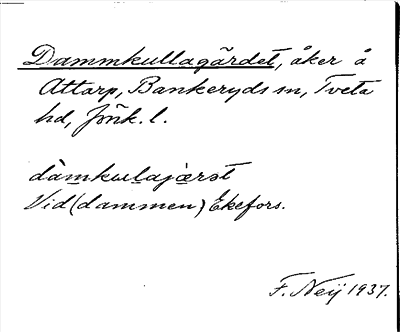 Dammkullagärdet, åker å
Attarp, Bankeryds sn, Tveta
hd, Jönk. l.
dàmkulajærət
Vid (dammen) Ekefors.
F. Neij 1937.